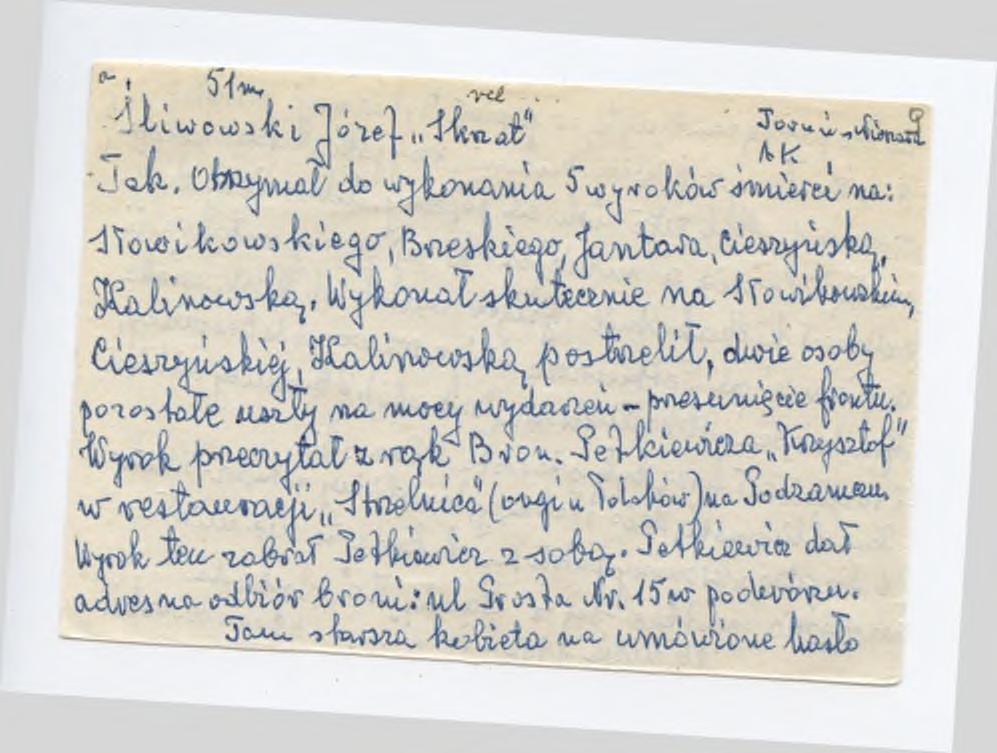 51 m. vel
Śliwowski Józef „Skrzat"
Toruń
AK
Tak. Otrzymał do wykonania 5 wyroków śmierci na:
Słowikowskiego, Brzeskiego, Jantara, Cieszyńską,
Kalinowską. Wykonał skutecznie na Słowikowskim,
Cieszyńskiej, Kalinowską postrzelił, dwie osoby
pozostałe uszły na mocy wydarzeń – przesunięcie frontu.
Wyrok przeczytał z rąk Bron. Pętkiewicza „Krzysztof"
w restauracji „Strzelnica" (ongi u Polaków) na Podzamczu.
Wyrok ten zabrał Pętkiewicz z sobą. Petkiewicz dał
adres na odbiór broni: ul Prosta Nr. 15 w podwórzu.
Tam starsza kobieta na umówione hasło